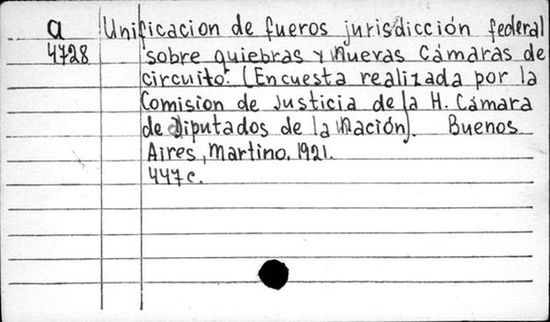 a Unificacion de fueros jurisdicción federal
4728 sobre quiebras y nuevas Cámaras de
circuito. (Encuesta realizada por la
Comision de Justicia de la H. Cámara
de Diputados de la Nación). Buenos
Aires, Martino. 1921.
447c.